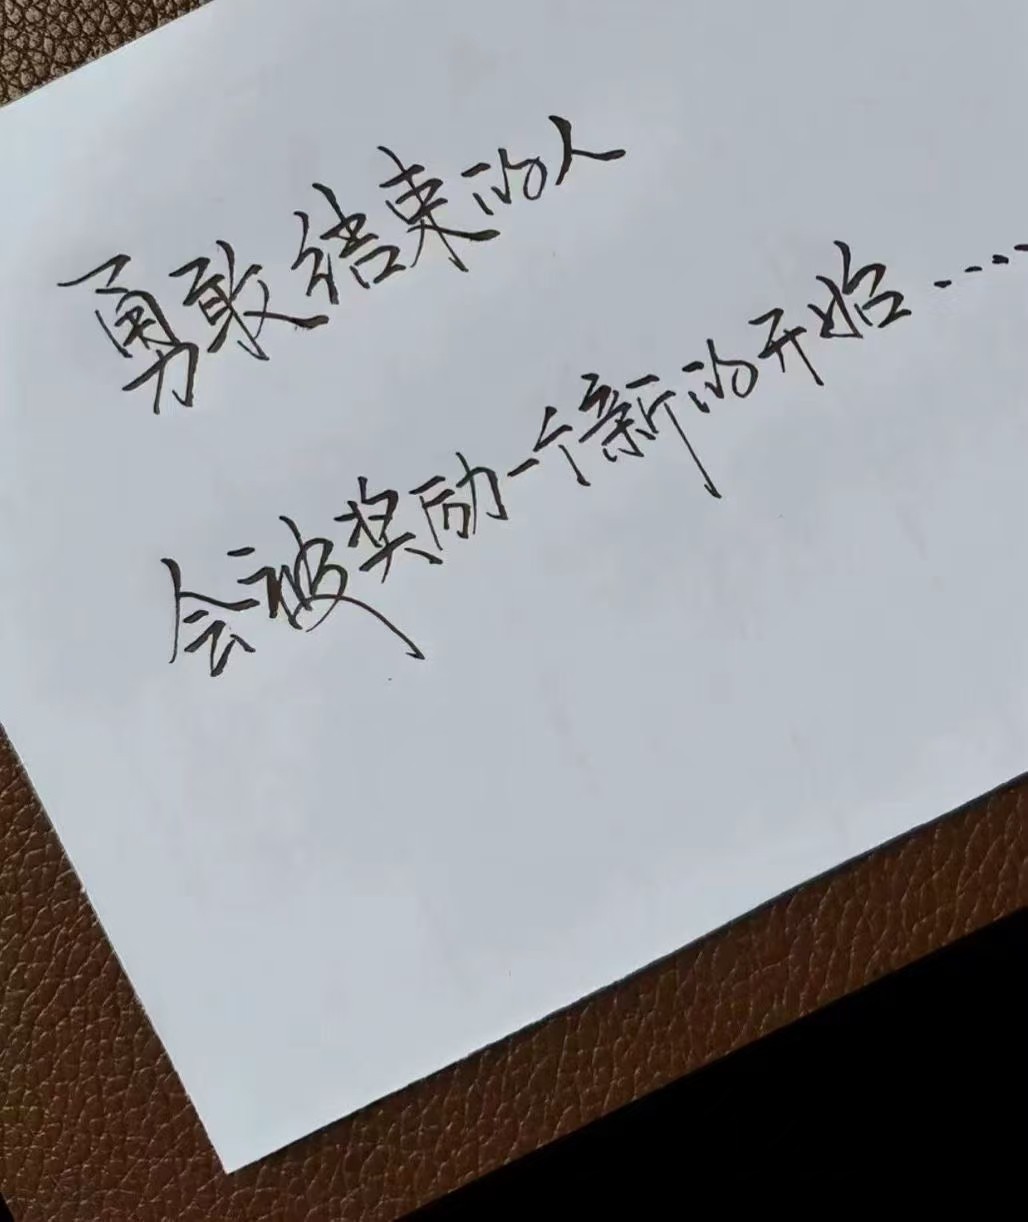 勇敢结束的人
会被奖励一个新的开始……